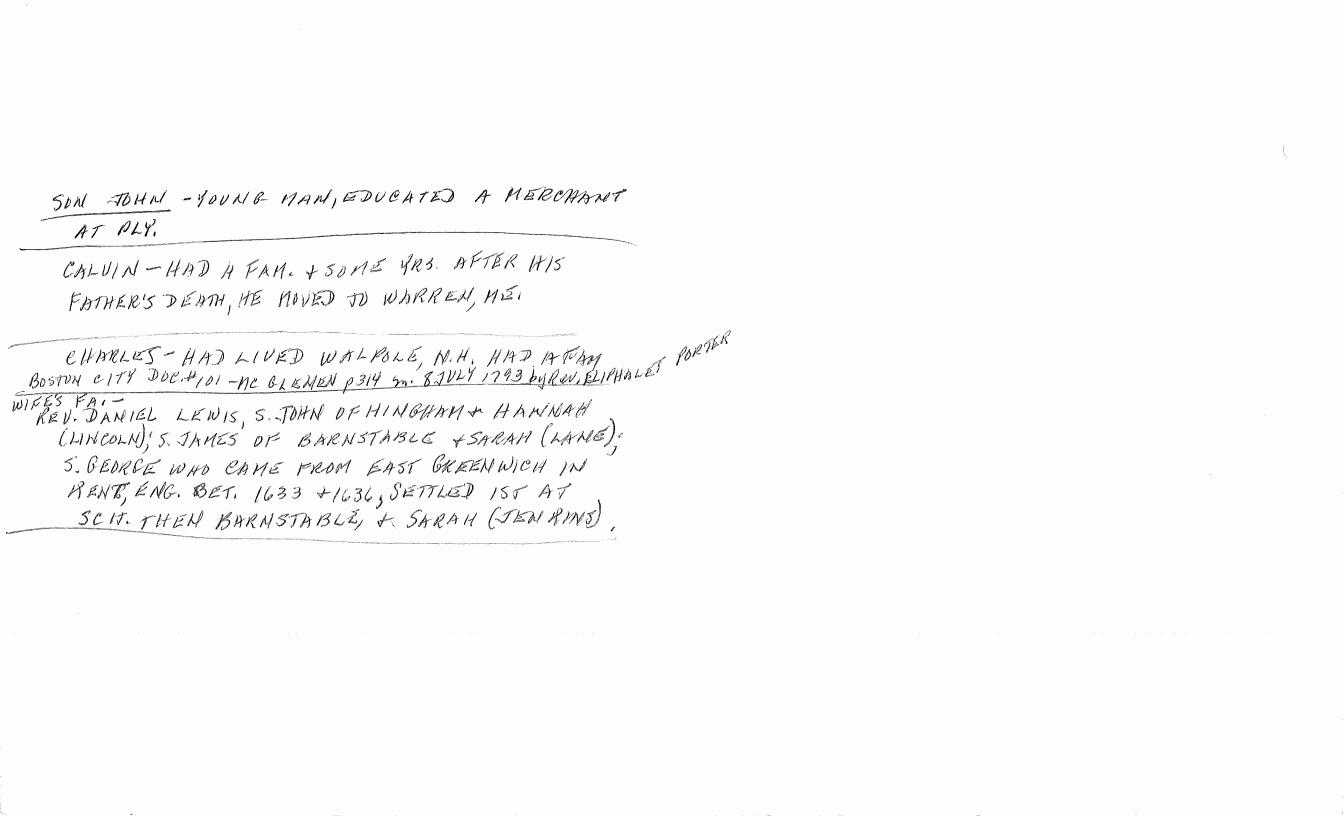 SON JOHN - YOUNG MAN, EDUCATED A MERCHANT
AT PLY.
CALVIN - HAD A FAM. + SOME YRS. AFTER HIS
FATHER'S DEATH, HE MOVED TO WARREN, ME.
CHARLES - HAD LIVED WALPOLE, N.H. HAD A FAM
BOSTON CITY DOC. #101 - MC GLENEN p 314 m. 8 JULY 1793 by Rev. ELIPHALET PORTER
WIFE'S FA. -
REV. DANIEL LEWIS, S. JOHN OF HINGHAM + HANNAH
(LINCOLN); S. JAMES OF BARNSTABLE + SARAH (LANE);
S. GEORGE WHO CAME FROM EAST GREENWICH IN
KENT, ENG. BET. 1633 + 1636, SETTLED 1ST AT
SCIT. THEN BARNSTABLE, + SARAH (JENKINS).